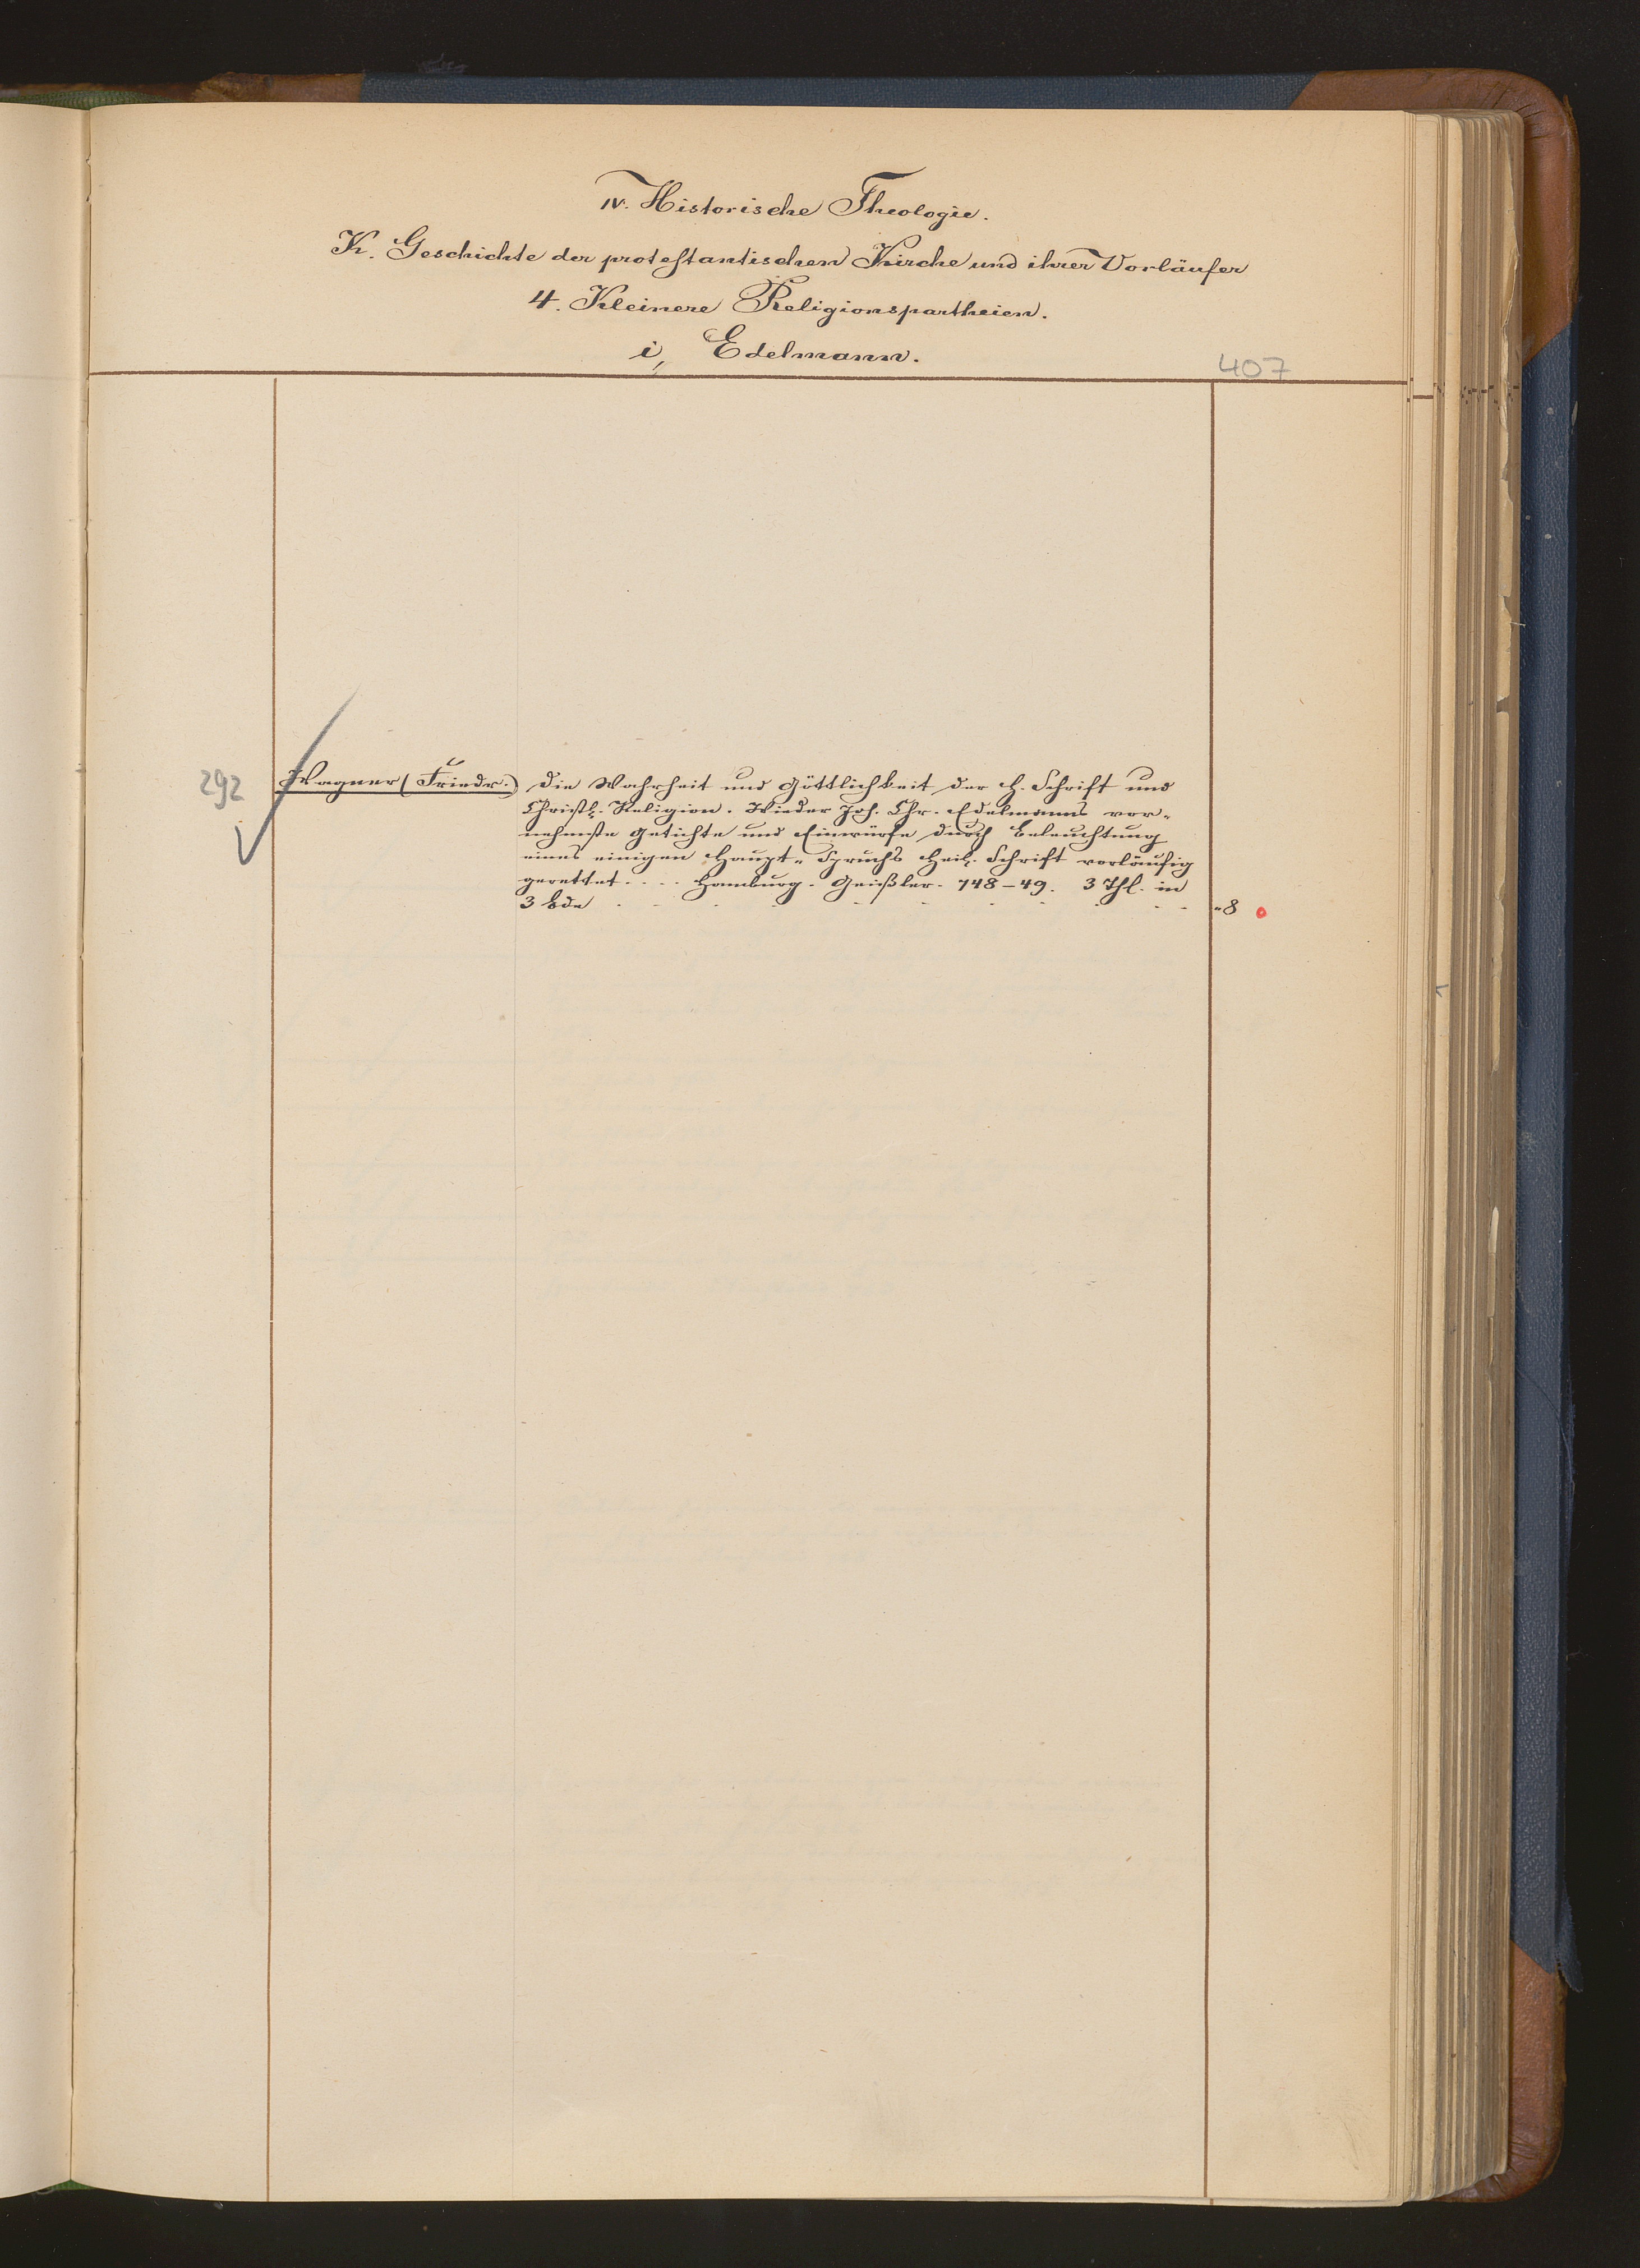 IV. Historische Theologie.
K. Geschichte der protestantischen Kirche und ihrer Vorläufer
4. Kleinere Religionspartheien.
i, Edelmann.
407
292 Wagner (Friedr.) Die Wahrheit und Göttlichkeit der H. Schrift und
Christl. Religion. Wieder Joh. Chr. Edelmanns vor-
nehmste Getichte und Einwürfe durch Beleuchtung
eines einigen Haupt-Spruchs Heil. Schrift vorläufig
gerettet .... Hamburg. Geißler. 748-49. 3 Thl. in
3 Bde . - . . . - - . . . - - "8